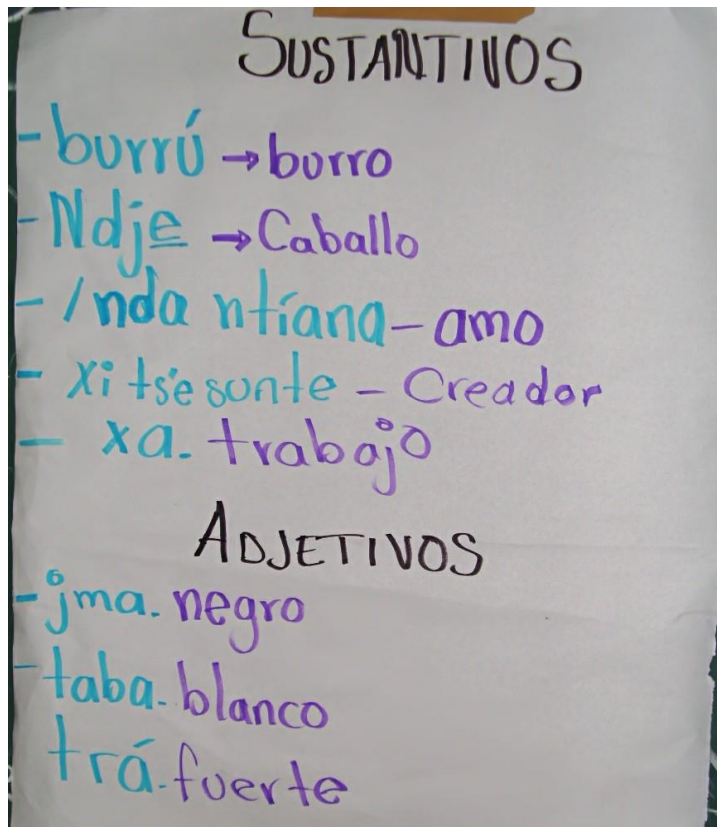 SUSTANTIVOS
-burrú →burro
-Ndje →Caballo
- Inda ntíana-amo
- xi ts'e sunte - Creador
- xa. trabajo
ADJETIVOS
-jma. negro
-taba. blanco
trá. fuerte